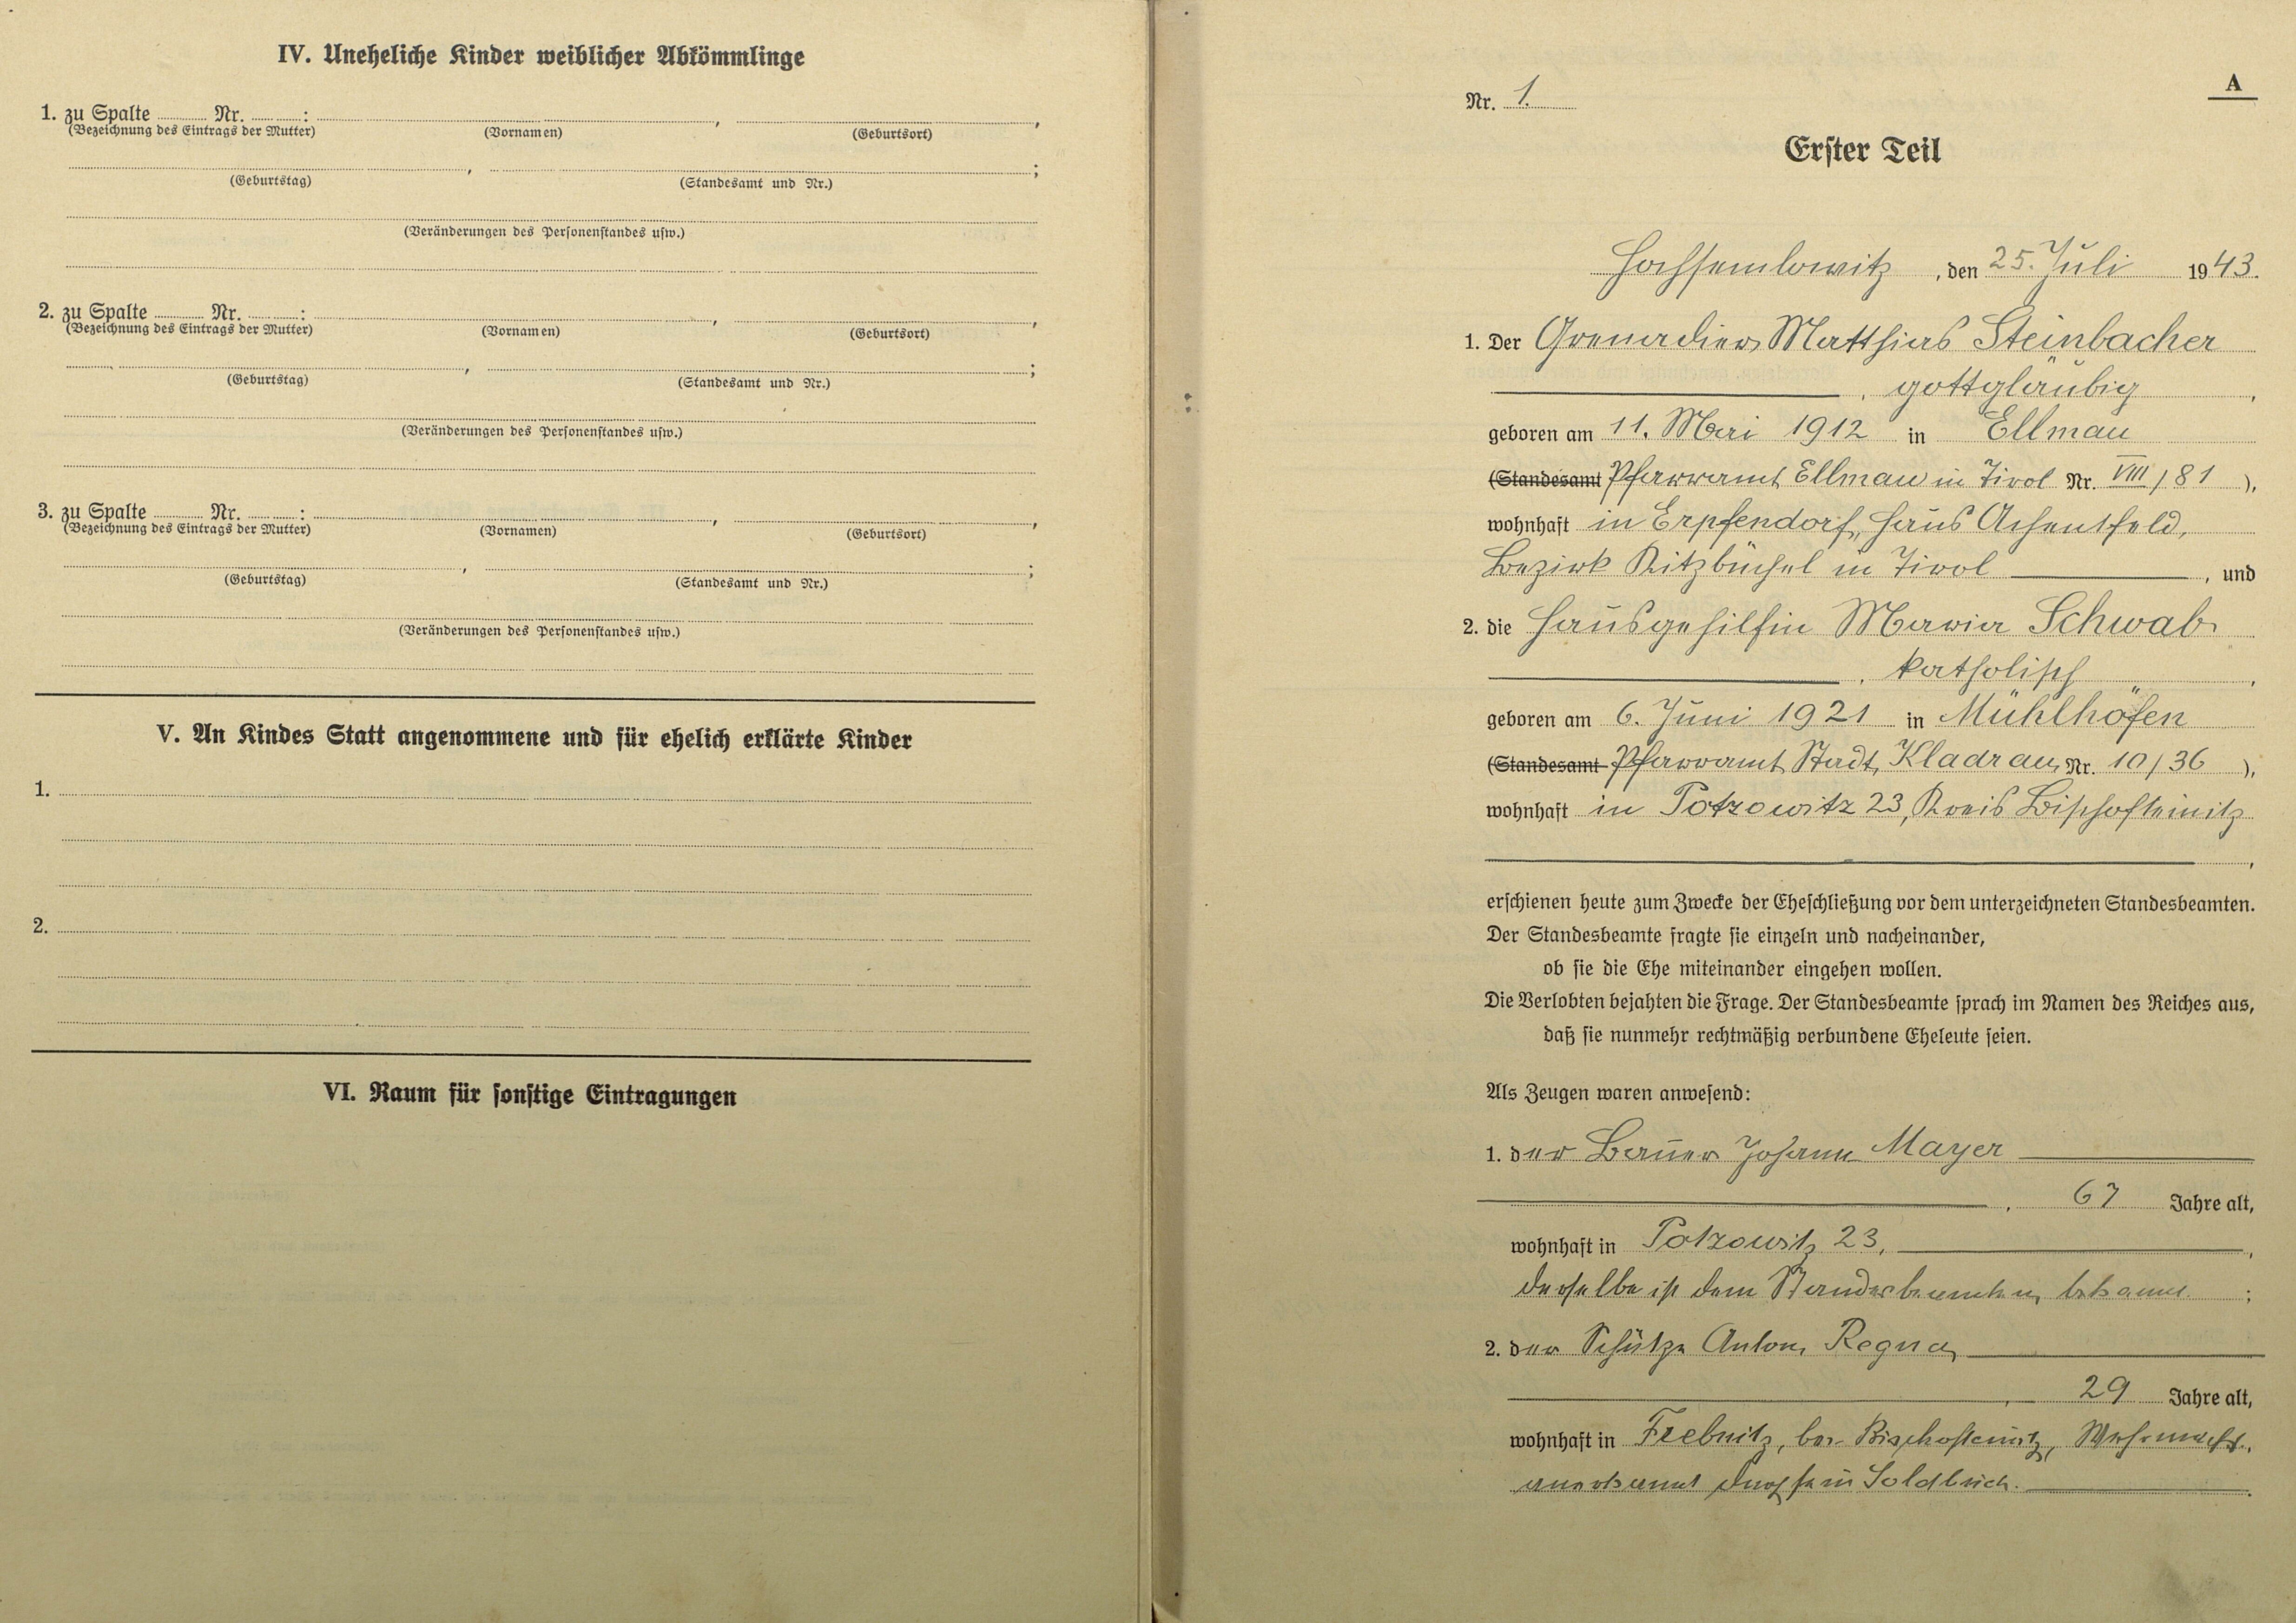 IV. Uneheliche Kinder weiblicher Abkömmlinge
1. zu Spalte ........ Nr. ........ : ........ , ........ ,
(Bezeichnung des Eintrags der Mutter) (Vornamen) (Geburtsort)
........ , ........ ;
(Geburtstag) (Standesamt und Nr.)
(Veränderungen des Personenstandes usw.)
2. zu Spalte ........ Nr. ........ : ........ , ........ ,
(Bezeichnung des Eintrags der Mutter) (Vornamen) (Geburtsort)
........ , ........ ;
(Geburtstag) (Standesamt und Nr.)
(Veränderungen des Personenstandes usw.)
3. zu Spalte ........ Nr. ........ : ........ , ........ ,
(Bezeichnung des Eintrags der Mutter) (Vornamen) (Geburtsort)
........ , ........ ;
(Geburtstag) (Standesamt und Nr.)
(Veränderungen des Personenstandes usw.)
V. An Kindes Statt angenommene und für ehelich erklärte Kinder
1.
2.
VI. Raum für sonstige Eintragungen
A
Nr. 1.
Erster Teil
Hochsemlowitz, den 25. Juli 1943.
1. Der Grenadier Matthias Steinbacher
, gottgläubig,
geboren am 11. Mai 1912 in Ellmau
(Standesamt Pfarramt Ellmau in Tirol Nr. VIII/81),
wohnhaft in Erpfendorf, Haus Achentfeld,
Bezirk Kitzbüchel in Tirol, und
2. die Hausgehilfin Maria Schwab
, katholisch,
geboren am 6. Juni 1921 in Mühlhöfen
(Standesamt Pfarramt Stadt Kladrau Nr. 10/36),
wohnhaft in Potzowitz 23, Kreis Bischofteinitz
,
erschienen heute zum Zwecke der Eheschließung vor dem unterzeichneten Standesbeamten.
Der Standesbeamte fragte sie einzeln und nacheinander,
ob sie die Ehe miteinander eingehen wollen.
Die Verlobten bejahten die Frage. Der Standesbeamte sprach im Namen des Reiches aus,
daß sie nunmehr rechtmäßig verbundene Eheleute seien.
Als Zeugen waren anwesend:
1. der Bauer Johann Mayer
, 67 Jahre alt,
wohnhaft in Potzowitz 23,
derselbe ist dem Standesbeamten bekannt;
2. der Schütze Anton Regna
, 29 Jahre alt,
wohnhaft in bei Bischofteinitz, Wehrmacht,
anerkannt durch sein Soldbuch.